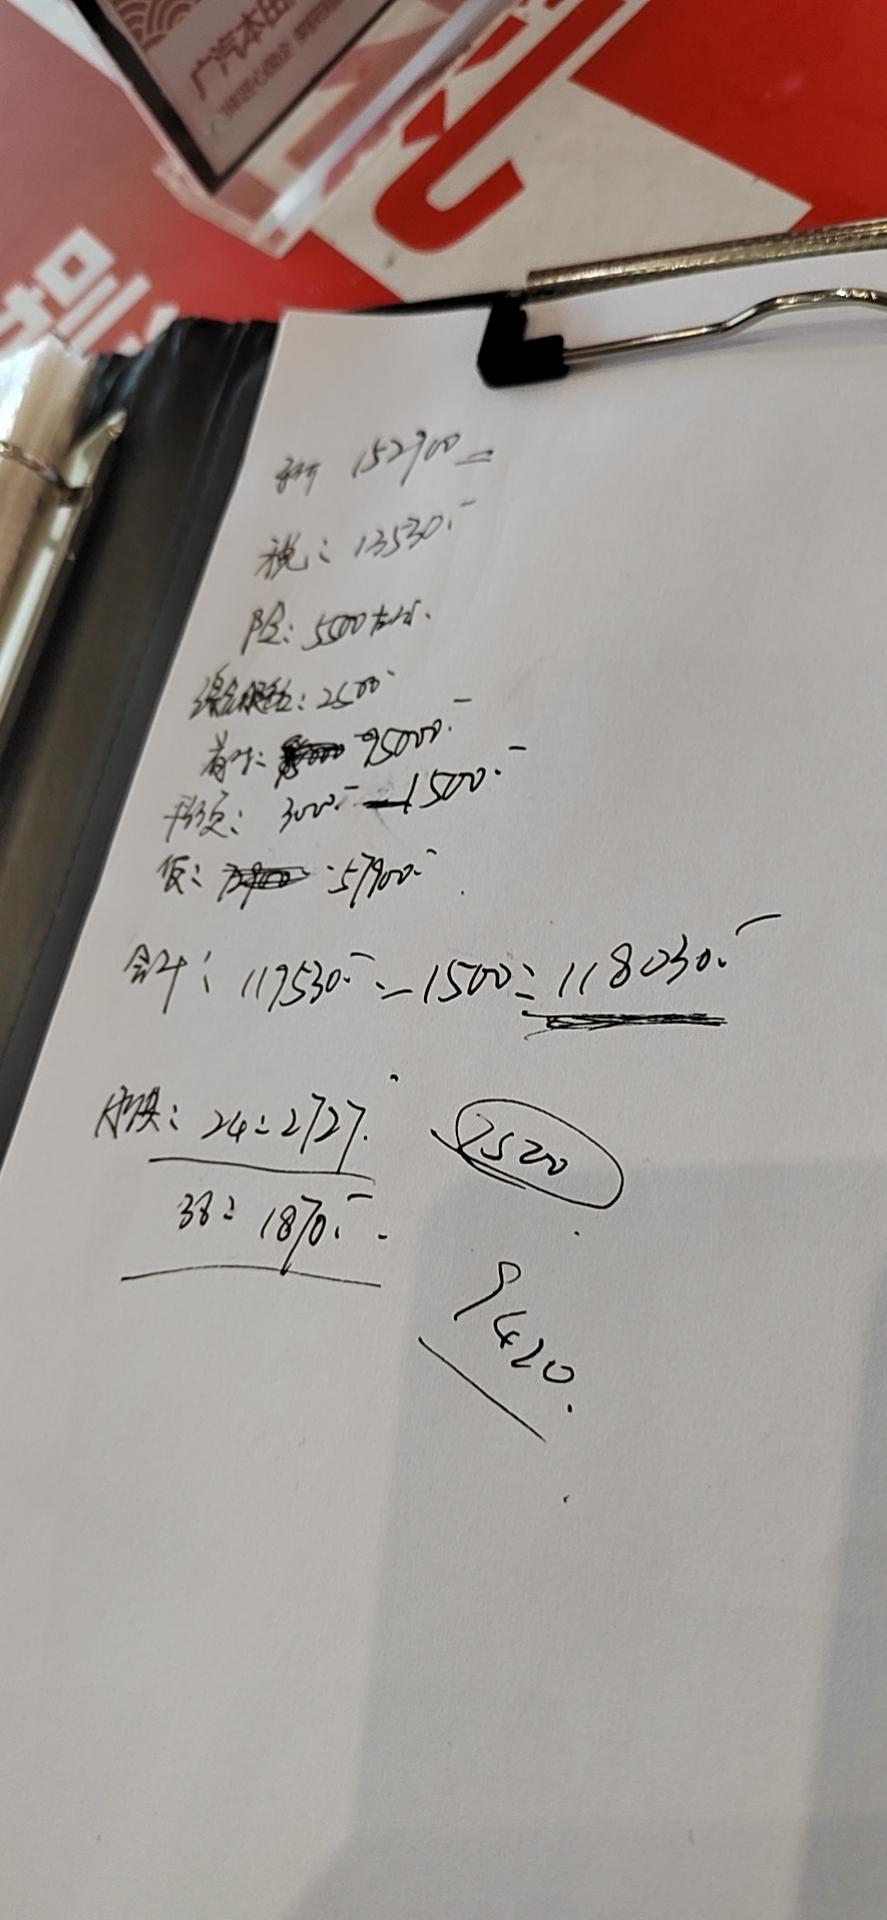 广汽本田
礼
车价 152900
税: 13530.-
险: 5500左右.
综合服务: 2500-
首付: 95000.-
手续费: 3000.- 1500.-
贷: 57900.-
合计: 119530.- - 1500 = 118030.-
月供: 24: 2727.
2520
38: 1870.-
9420.